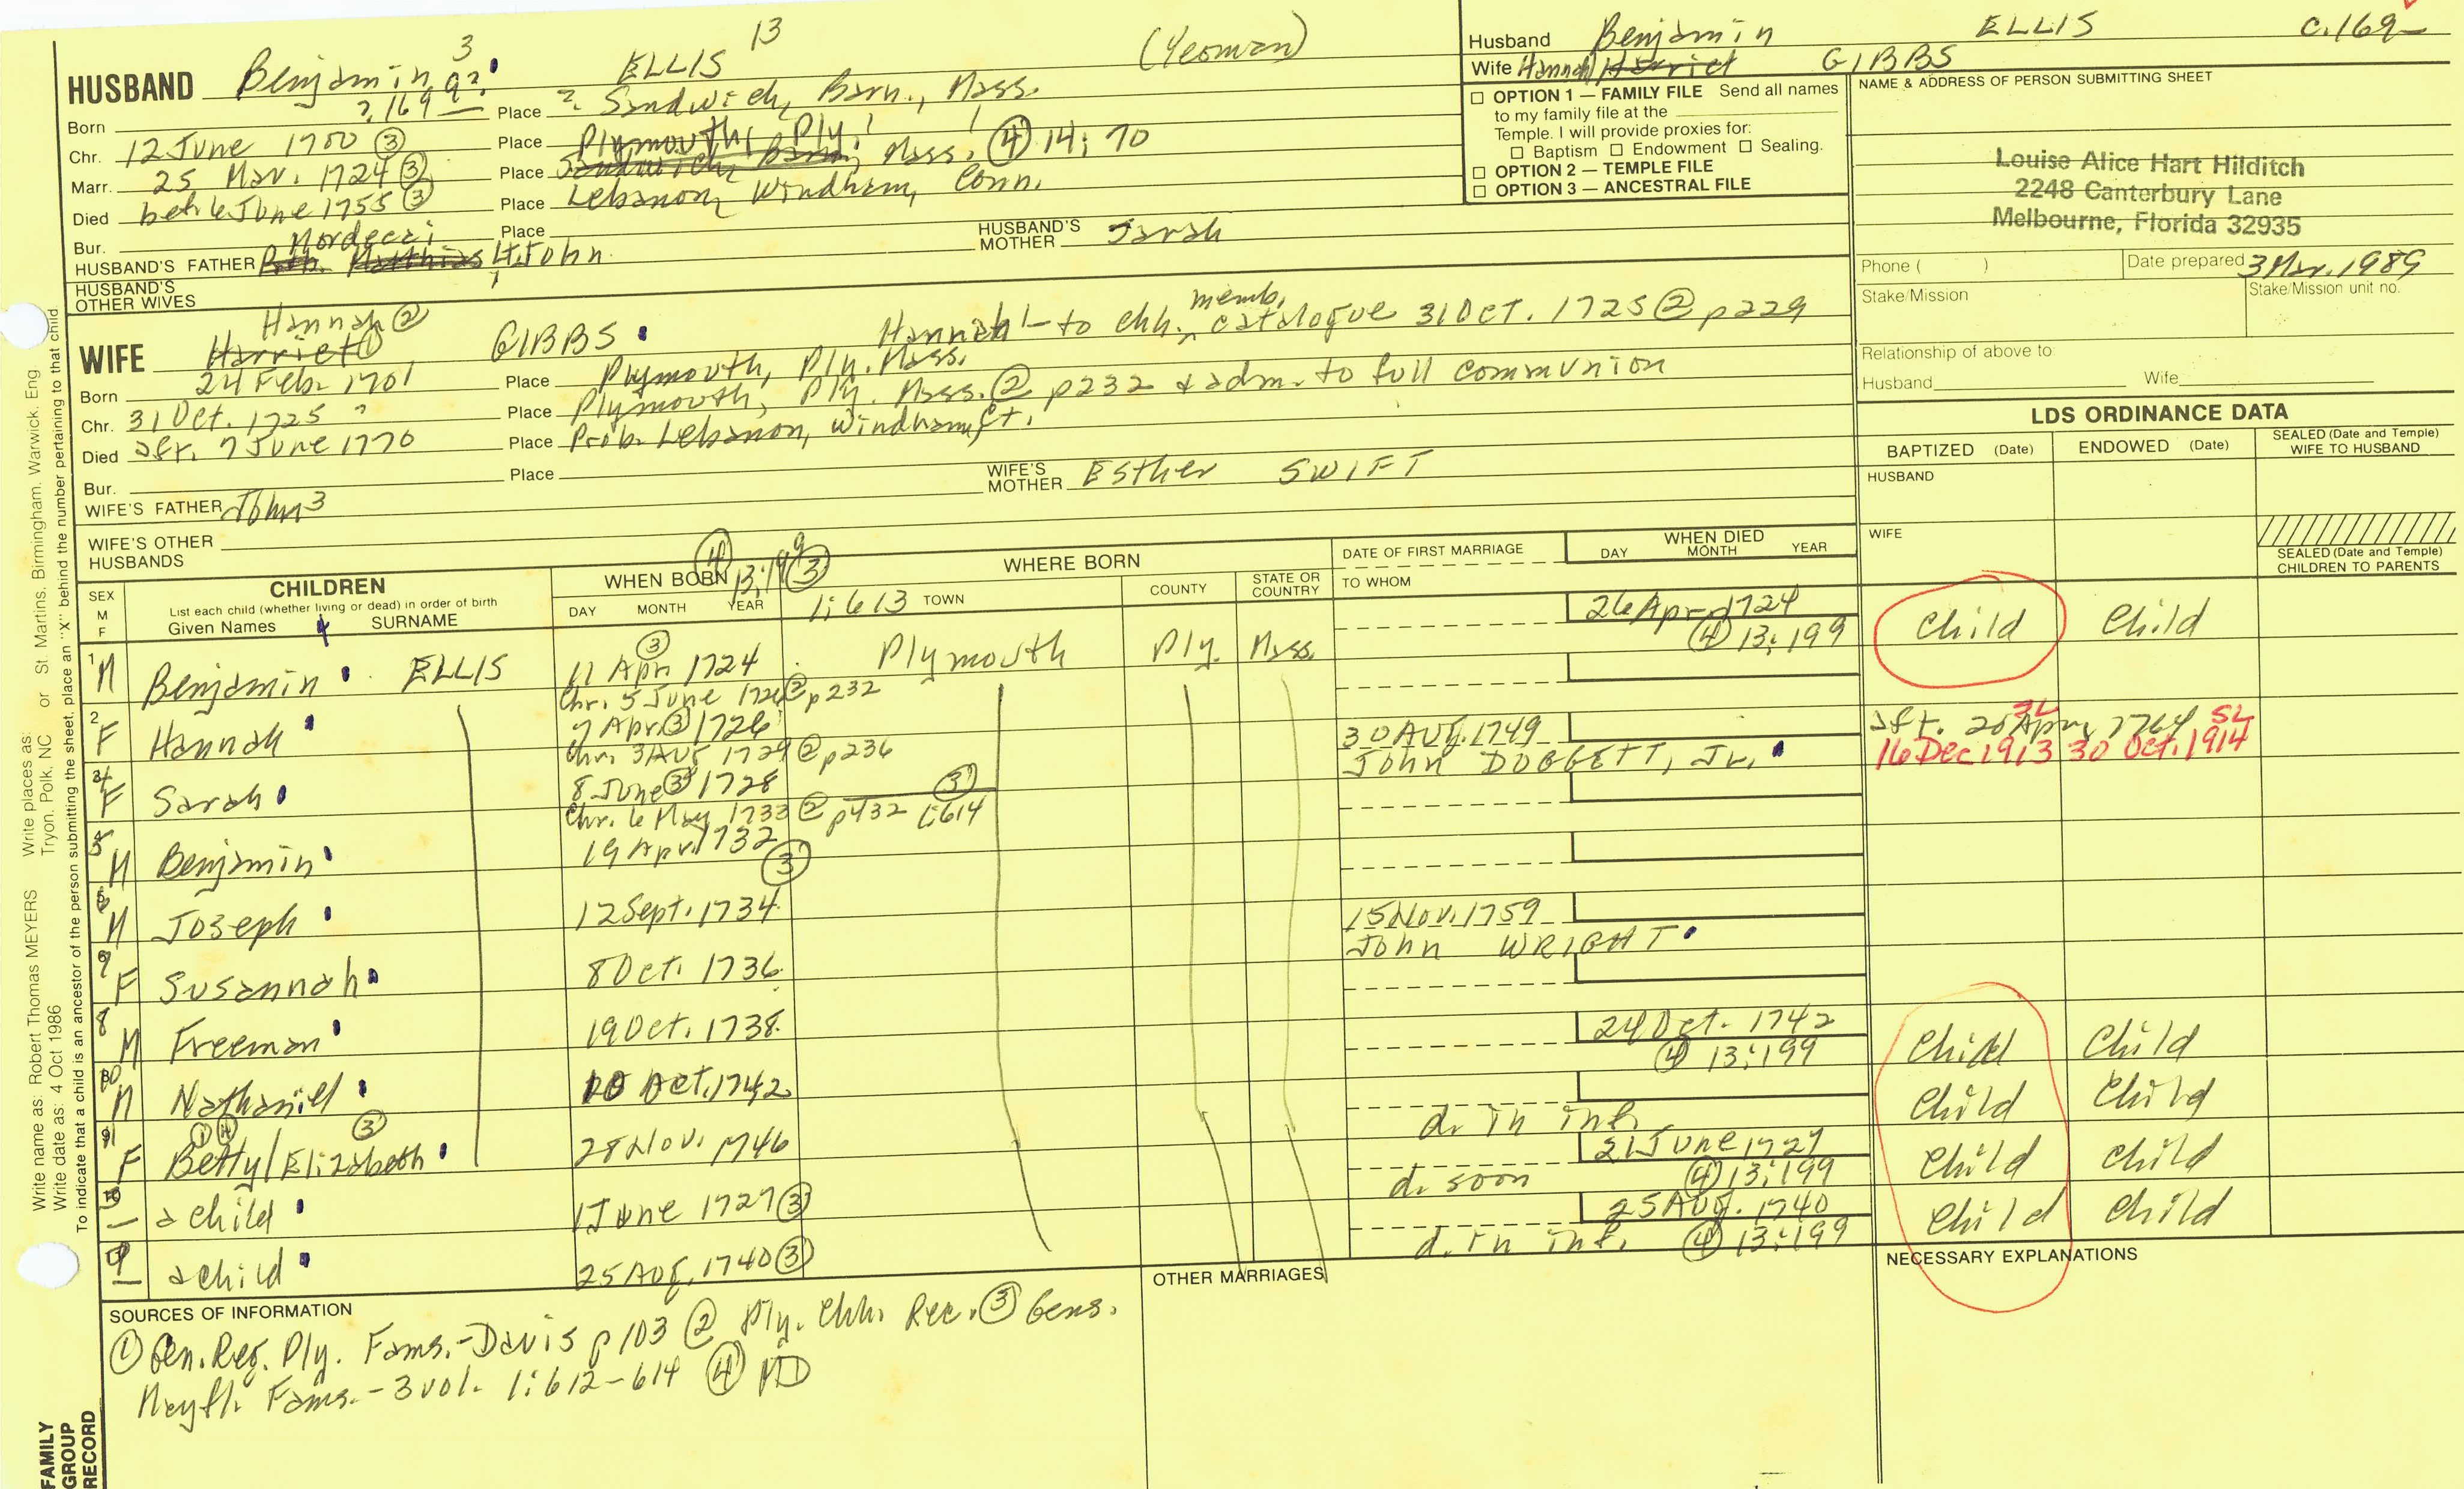 HUSBAND Benjamin 3 ELLIS 13 (Yeoman)
Born ?, 169 9?: Place ? Sandwich, Barn., Mass.
Chr. 12 June 1700 ③ Place Plymouth, Ply.
Marr. 25 Mar. 1724 ③ Place Sandwich, Barn, Mass. ④ 14: 70
Died bet 6 June 1755 ③ Place Lebanon, Windham, Conn.
Bur. Place
Mordecai
HUSBAND'S FATHER Prob. Matthias Lt. John HUSBAND'S MOTHER Sarah
HUSBAND'S OTHER WIVES
Hannah ②
WIFE Harriet ① GIBBS Hannah - to chh. memb. catalogue 31 Oct. 1725 ② p229
Born 24 Feb. 1701 Place Plymouth, Ply. Mass.
Chr. 31 Oct. 1725 ? Place Plymouth, Ply. Mass. ② p232 & adm. to full communion
Died aft. 7 June 1770 Place Prob. Lebanon, Windham, Ct.
Bur. Place
WIFE'S FATHER John 3 WIFE'S MOTHER Esther SWIFT
WIFE'S OTHER HUSBANDS
Husband Benjamin ELLIS c.169-
Wife Hannah/Harriet GIBBS
OPTION 1 — FAMILY FILE Send all names
to my family file at the
Temple. I will provide proxies for:
Baptism Endowment Sealing.
OPTION 2 — TEMPLE FILE
OPTION 3 — ANCESTRAL FILE
NAME & ADDRESS OF PERSON SUBMITTING SHEET
Louise Alice Hart Hilditch
2248 Canterbury Lane
Melbourne, Florida 32935
Phone ( ) Date prepared 3 Mar. 1989
Stake/Mission Stake/Mission unit no.
Relationship of above to
Husband Wife
LDS ORDINANCE DATA
BAPTIZED (Date) ENDOWED (Date) SEALED (Date and Temple) WIFE TO HUSBAND
HUSBAND
WIFE
SEALED (Date and Temple) CHILDREN TO PARENTS
SEX M F
CHILDREN
List each child (whether living or dead) in order of birth
Given Names SURNAME
WHEN BORN ④ 13:199 ③ 1:613
DAY MONTH YEAR
WHERE BORN
TOWN COUNTY STATE OR COUNTRY
DATE OF FIRST MARRIAGE
TO WHOM
WHEN DIED
DAY MONTH YEAR
1 M Benjamin ELLIS 11 Apr. 1724 ③ Plymouth Ply. Mass. 26 Apr. 1724 ④ 13:199 Child Child
Chr. 5 June 1726 ② p232
2 F Hannah 7 Apr. ③ 1726
Chr. 3 Aug 1729 ② p236
30 Aug. 1749 JOHN DOGGETT, Jr.
aft. 20 Apr. 1764
SL SL
16 Dec 1913 30 Oct. 1914
F Sarah 8 June ③ 1728
Chr. 6 May 1733 ② p432 ③ 1:614
M Benjamin 19 Apr. 1732 ③
M Joseph 12 Sept. 1734
F Susannah 8 Oct. 1736 15 Nov. 1759 John WRIGHT
8 M Freeman 19 Oct. 1738
M Nathaniel 10 Oct. 1742 24 Oct. 1742 ④ 13:199 Child Child
F Betty/Elizabeth ① ④ ③ 28 Nov. 1746 d. in inf. Child Child
a child 1 June 1727 ③ d. soon 21 June 1727 ④ 13:199 Child Child
a child 25 Aug. 1740 ③ d. in inf. 25 Aug. 1740 ④ 13:199 Child Child
SOURCES OF INFORMATION
① Gen. Reg. Ply. Fams. - Davis p103 ② Ply. Chh. Rec. ③ Gens.
Mayfl. Fams. - 3 vol. 1:612-614 ④ MD
OTHER MARRIAGES
NECESSARY EXPLANATIONS
Write name as: Robert Thomas MEYERS Write places as: Tryon, Polk, NC or St. Martins, Birmingham, Warwick, Eng
Write date as: 4 Oct 1986
To indicate that a child is an ancestor of the person submitting the sheet, place an "X" behind the number pertaining to that child
FAMILY
GROUP
RECORD